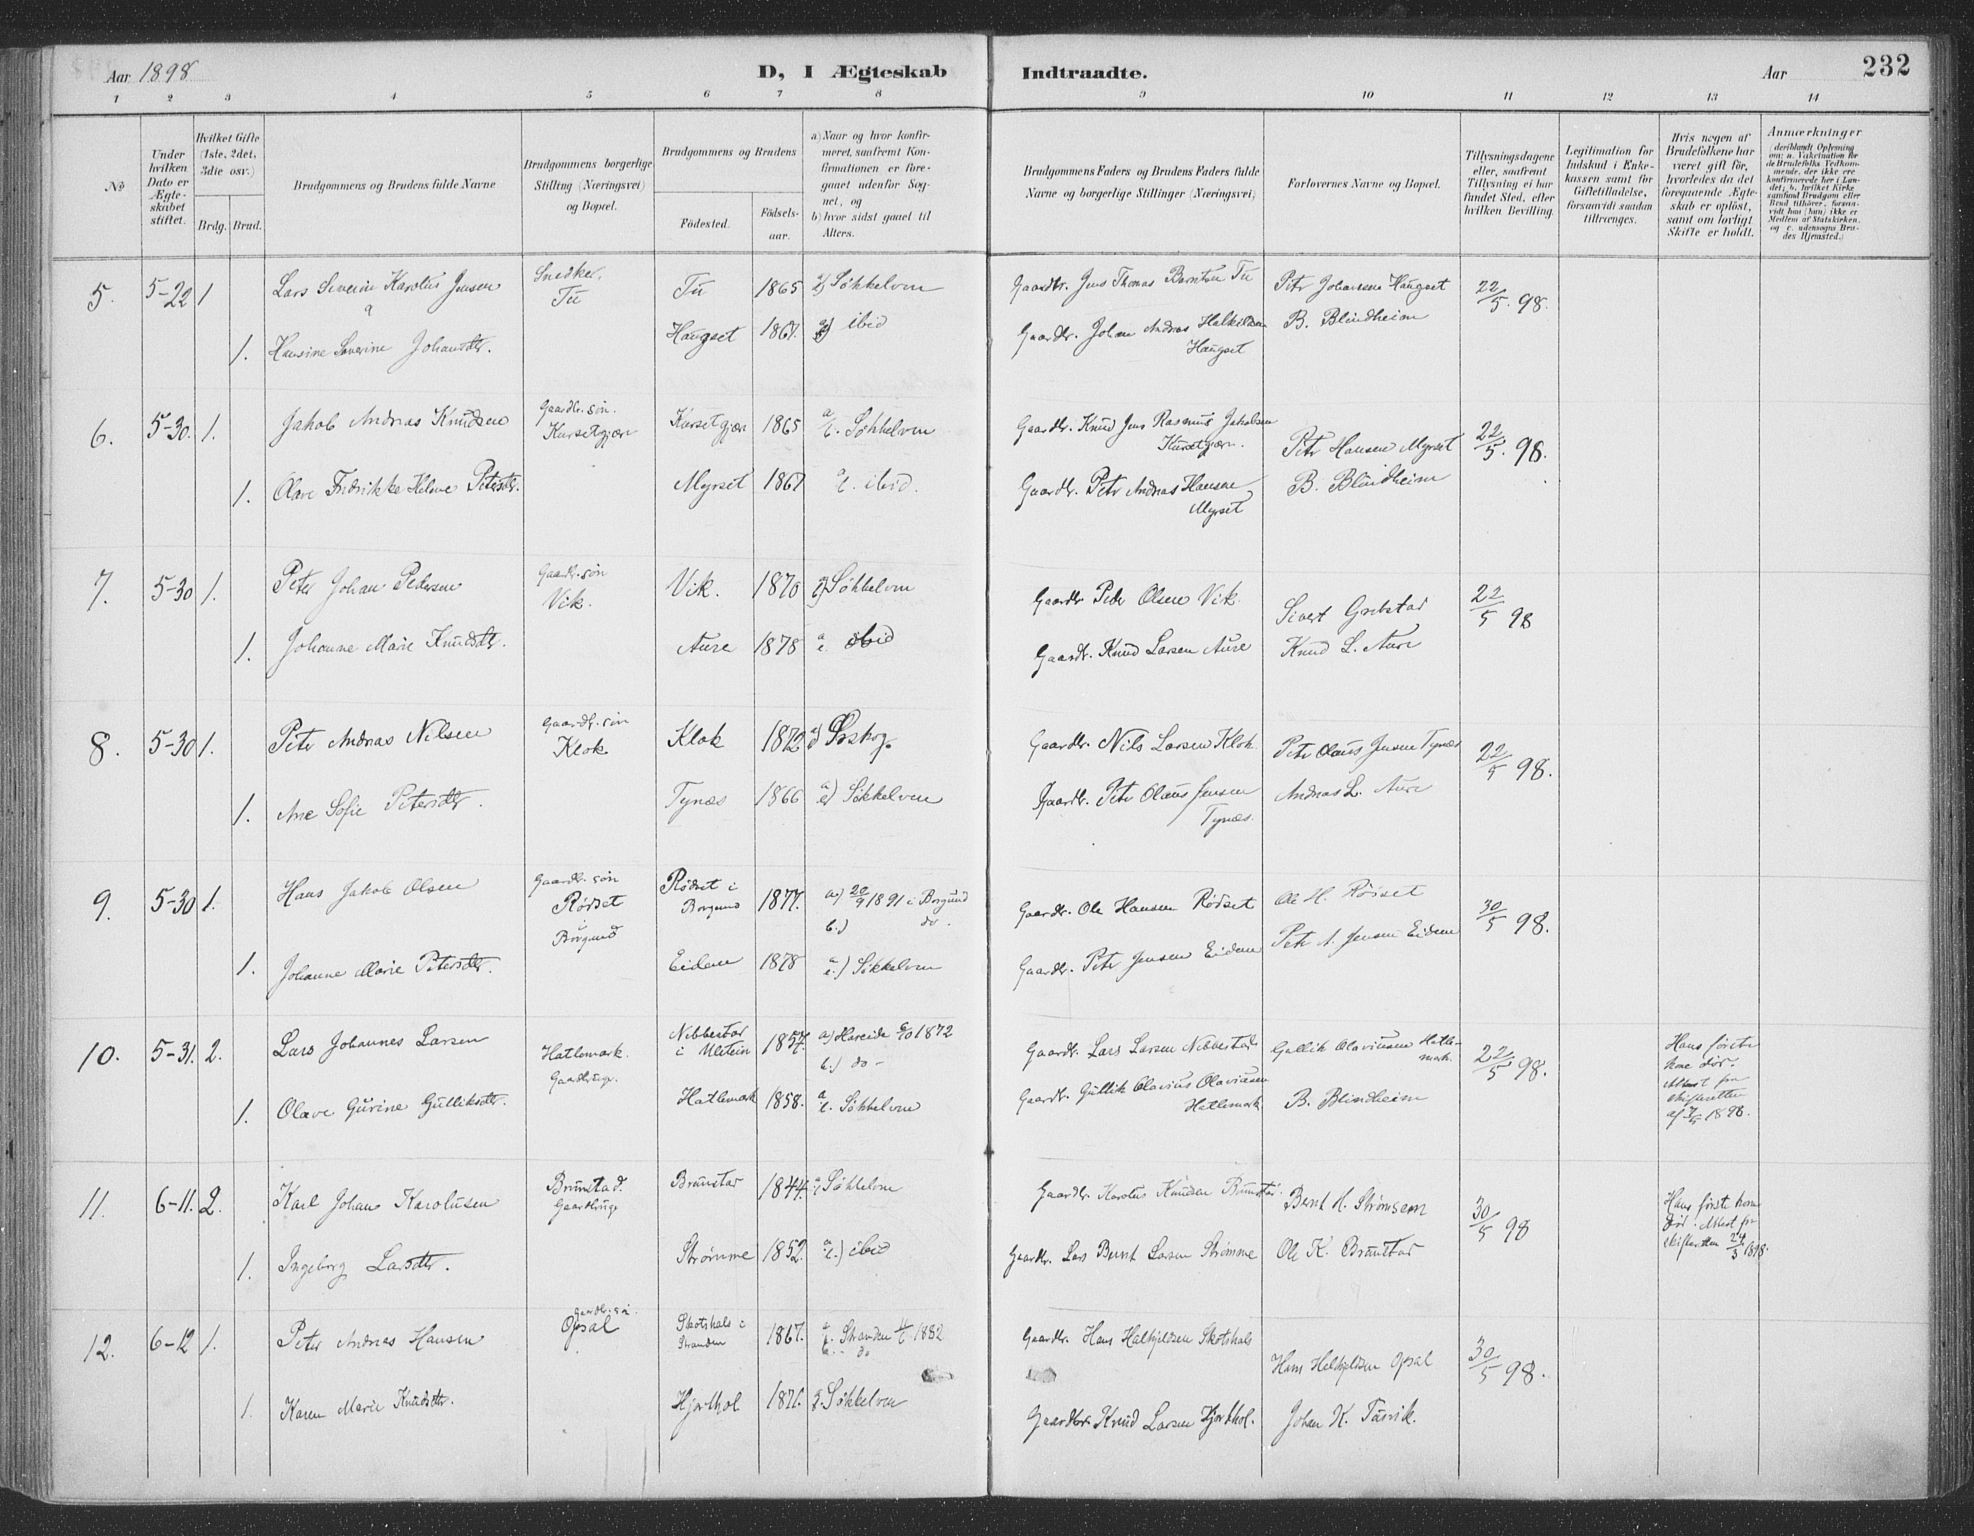 Aar 1898
D, I Ægteskab Indtraadte.
Aar
232
1 2 3 4 5 6 7 8 9 10 11 12 13 14
No
Under hvilken Dato er Ægteskabet stiftet.
Hvilket Gifte (1ste, 2det, 3die osv.)
Brdg. Brud.
Brudgommens og Brudens fulde Navne
Brudgommens borgerlige Stilling (Næringsvei) og Bopæl.
Brudgommens og Brudens
Fødested.
Fødselsaar.
a) Naar og hvor konfirmeret, samt om Konfirmationen er foregaaet udenfor Sognet, og
b) hvor sidst gaaet til Alters.
Brudgommens Faders og Brudens Faders fulde Navne og borgerlige Stillinger (Næringsvei)
Forlovernes Navne og Bopæl.
Tillysningsdagene eller, saafremt Tillysning ei har fundet Sted, efter hvilken Bevilling.
Legitimation for Indskud i Enkekassen samt for Giftetilladelse, forsaavidt saadan tiltrænges.
Hvis nogen af Brudefolkene har været gift før, hvorledes da det foregaaende Ægteskab er opløst, samt om lovligt Skifte er holdt.
Anmærkninger
5. 5-22 1 Lars Severin Karolus Jensen Snedker. Tu Tu 1865 Søkkelven Gaardbr. Jens Thomas Berntsen Tu Petr Johansen Haugset 22/5. 98.
&
1. Hansine Severine Johansdtr. Haugset 1867. ibid Gaardbr. Johan Andreas Halkildsen Haugset B. Blindheim
6. 5-30. 1. Jakob Andreas Knudsen Gaardbr. søn. Kursetgjær Kursetgjær 1865 Søkkelven Gaardbr. Knud Jens Rasmus Jakobsen Kursetgjær. Petr Hansen Myrset 22/5. 98.
1. Olave Fredrikke Helene Petersdtr. Myrset 1867 ibid. Gaardbr. Petr Andreas Hansen Myrset B. Blindheim
7. 5-30 1. Peter Johan Pedersen Gaardbr. søn Vik. Vik. 1870 Søkkelven Gaardbr Peder Olsen Vik. Sivert Grebstad 22/5 98
1. Johanne Marie Knudsdtr. Aure 1878 ibid Gaardbr. Knud Larsen Aure Knud L. Aure
8. 5-30 1. Petr Andreas Nilsen Gaardbr. søn Klok Klok 1872 Ørskog. Gaardbr. Nils Larsen Klok. Petr Olaus Jensen Tynæs 22/5 98.
1. Ane Sofie Petersdtr. Tynæs 1866 Søkkelven Gaardbr. Petr Olaus Jensen Tynæs. Andreas L. Aure
9. 5-30 1. Hans Jakob Olsen Gaardbr. søn Rødset i Borgund Rødset i Borgund 1877. a.) 20/9 1891 i Borgund b.) do. Gaardbr. Ole Hansen Rødset Ole H. Rødset 30/5 98.
1. Johanne Marie Petersdtr. Eidem 1878 Søkkelven Gaardbr. Petr Jensen Eidem Petr A. Jensen Eidem
10. 5-31. 2. Lars Johannes Larsen Hatlemark. Gaardbruger. Nebbestad i Ulstein 1857. a) Hareide 6/10 1872 b.) do - Gaardbr. Lars Larsen Nebbestad Gullik Olaviusen Hatlemark. 22/5 98. Hans første kone død. Attest fra skifteretten af 7/5 1898.
1. Olave Gurine Gulliksdtr. Hatlemark 1858. Søkkelven Gaardbr. Gullik Olavius Olaviusen Hatlemark B. Blindheim
11. 6-11. 2. Karl Johan Karolusen Brunstad. Gaardbruger Brunstad 1844. Søkkelven Gaardbr. Karolus Knudsen Brunstad. Bernt H. Strømsem 30/5 98 Hans første kone død. Attest fra skifteretten 24/5 1898.
1. Ingeborg Larsdtr. Strømme 1852. ibid Gaardbr. Lars Bernt Larsen Strømme Ole K. Brunstad
12. 6-12 1. Peter Andreas Hansen Gaardbr. søn. Opsal Skotshals i Stranden 1867. Stranden 1882 do Gaardbr. Hans Halkjeldsen Skotshals Hans Helkjeldsen Opsal 30/5 98.
1. Karen Marie Knudsdtr. Hjorthol 1871. Søkkelven Gaardbr. Knud Larsen Hjorthol. Johan K. Tusvik.